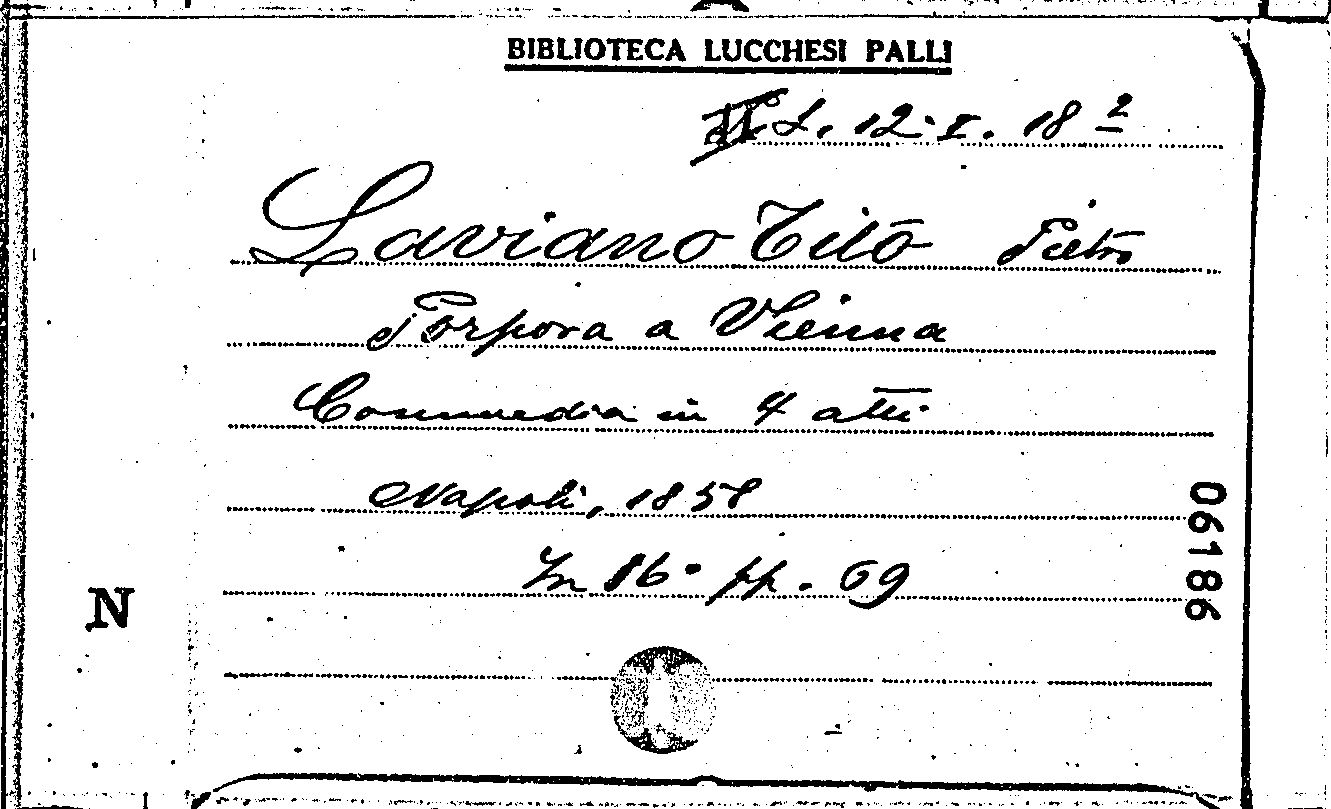 BIBLIOTECA LUCCHESI PALLI
L. 12. I. 18 2
Laviano Tito Pietro
Porpora a Vienna
Commedia in 4 atti
Napoli, 1858
In 16° pp. 69
06186
N